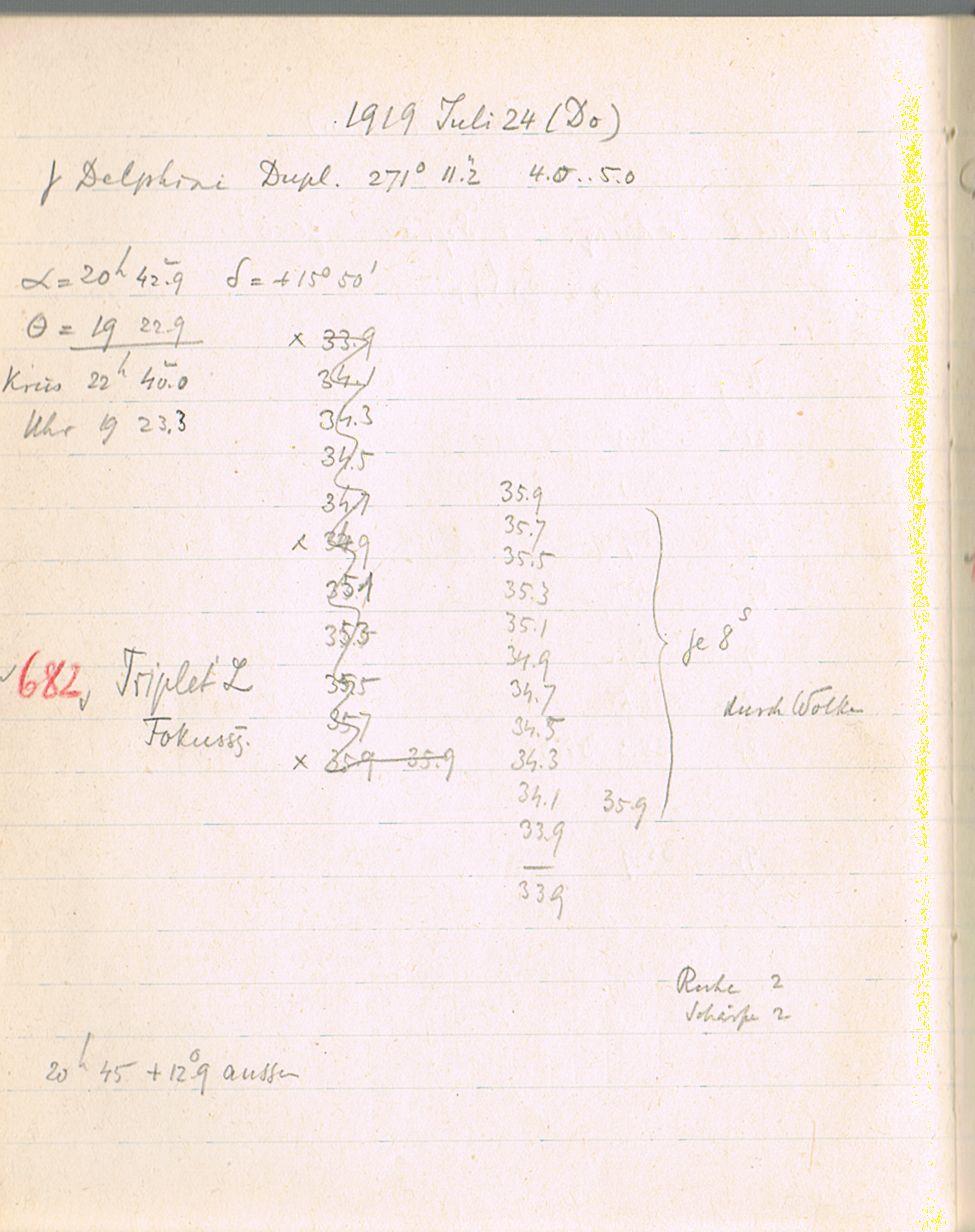 1919 Juli 24 (Do)
γ Delphini Dupl. 271° 11."2 4.0..5.0
α = 20ʰ 42.ᵐ9 δ = +15° 50'
θ = 19 22.9
Kreis 22ʰ 40.ᵐ0
Uhr 19 23.3
× 33.9
34.1
34.3
34.5
34.7
× 34.9
35.1
35.3
35.5
35.7
× 35.9 35.9
682, Triplet L
Fokuss.
35.9
35.7
35.5
35.3
35.1
34.9
34.7
34.5
34.3
34.1 35.9
33.9
33.9
je 8ˢ
durch Wolken
Ruhe 2
Schärfe 2
20ʰ 45 +12.°9 aussen